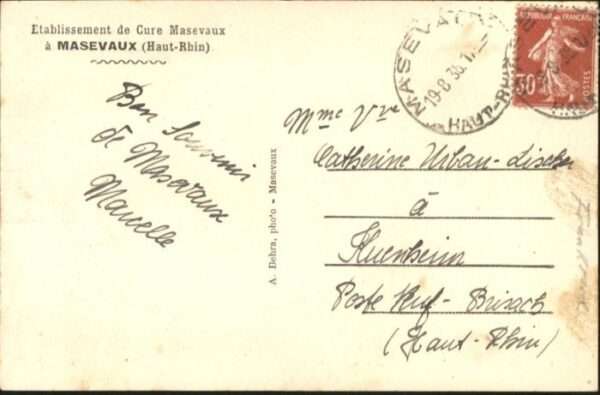 Etablissement de Cure Masevaux
à MASEVAUX (Haut-Rhin)
Bon Souvenir
de Masevaux
Marcelle
A. Dehra, photo - Masevaux
MASEVAUX
19-8 36
HAUT-RHIN
REPUBLIQUE FRANÇAISE
30c
POSTES
Mme Vve
Catherine Urban-Lischer
à
Kuenheim
Poste Neuf-Brisach
(Haut-Rhin)